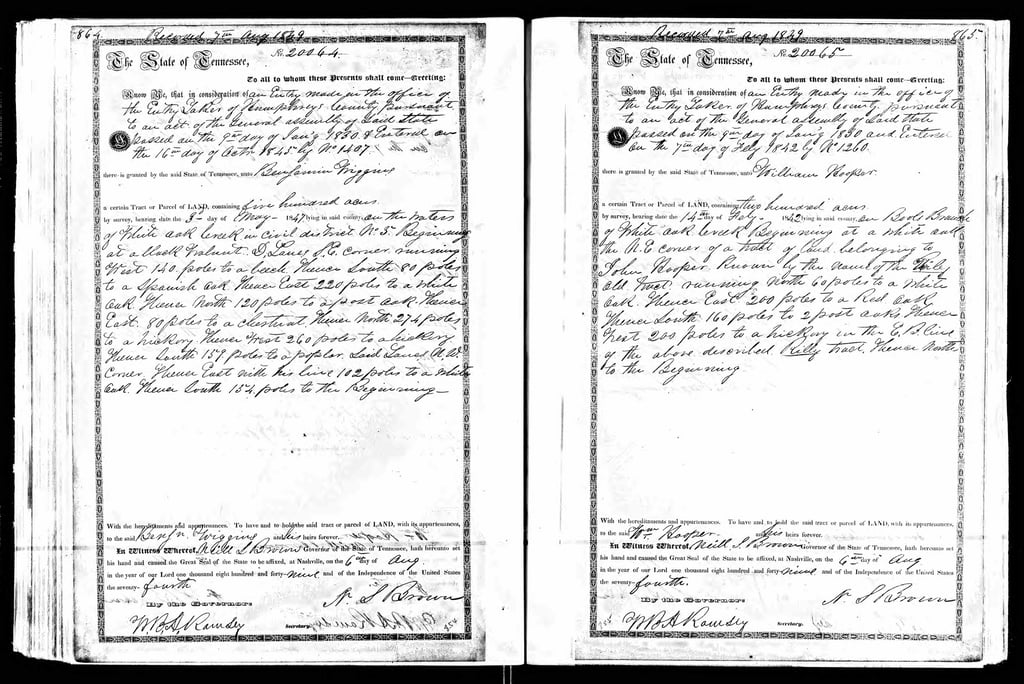 864
Recorded 7th Aug 1849
No. 20064
The State of Tennessee,
To all to whom these Presents shall come—Greeting:
Know Ye, that in consideration of an Entry made in the office of
the Entry Taker of Humphreys County pursuant
to an act of the General assembly of Said State
passed on the 9th day of Jan'y 1830 & Entered on
the 16th day of Octr 1845 by No 1407.
there is granted by the said State of Tennessee, unto Benjamin Wiggins
a certain Tract or Parcel of LAND, containing five hundred acres
by survey, bearing date the 3d day of May 1847 lying in said county, on the waters
of White oak Creek in civil district No 5. Beginning
at a black walnut D. Lanes S.E. corner running
West 140 poles to a beech Thence South 80 poles
to a Spanish oak Thence East 220 poles to a white
oak. Thence North 120 poles to a post oak. Thence
East. 80 poles to a chestnut. Thence North 274 poles
to a hickory Thence West 260 poles to a hickory
Thence South 159 poles to a poplar. Said Lanes N.W.
Corner. Thence East with his line 102 poles to a white
oak. Thence South 154 poles to the Beginning—
With the hereditaments and appurtenances. To have and to hold the said tract or parcel of LAND, with its appurtenances,
to the said Benjn Wiggins and his heirs forever.
In Witness Whereof, Neill S Brown Governor of the State of Tennessee, hath hereunto set
his hand and caused the Great Seal of the State to be affixed, at Nashville, on the 6th day of Aug
in the year of our Lord one thousand eight hundred and forty-nine and of the Independence of the United States
the seventy-fourth
By the Governor.
N. S Brown
W B A Ramsey
Secretary.
865
Recorded 7th Aug 1849
No. 20065
The State of Tennessee,
To all to whom these Presents shall come—Greeting:
Know Ye, that in consideration of an Entry made in the office of
the Entry Taker of Humphreys County, pursuant
to an act of the General assembly of Said State
passed on the 9th day of Jan'y 1830 and Entered
on the 7th day of Feby 1842 by No 1260.
there is granted by the said State of Tennessee, unto William Hooper
a certain Tract or Parcel of LAND, containing hundred acres
by survey, bearing date the 14th day of Feby 1842 lying in said county, on Branch
of White oak Creek Beginning at a white oak
the N.E corner of a tract of land belonging to
John Hooper Known by the name of the
old tract running North 60 poles to a White
oak. Thence East 200 poles to a Red oak
Thence South 160 poles to 2 post oaks Thence
West 200 poles to a hickory in the E. B. line
of the above described tract. Thence North
to the Beginning
With the hereditaments and appurtenances. To have and to hold the said tract or parcel of LAND, with its appurtenances,
to the said Wm. Hooper and his heirs forever.
In Witness Whereof, Neill S Brown Governor of the State of Tennessee, hath hereunto set
his hand and caused the Great Seal of the State to be affixed, at Nashville, on the 6th day of Aug
in the year of our Lord one thousand eight hundred and forty-nine and of the Independence of the United States
the seventy-fourth.
By the Governor.
N. S Brown
W B A Ramsey
Secretary.